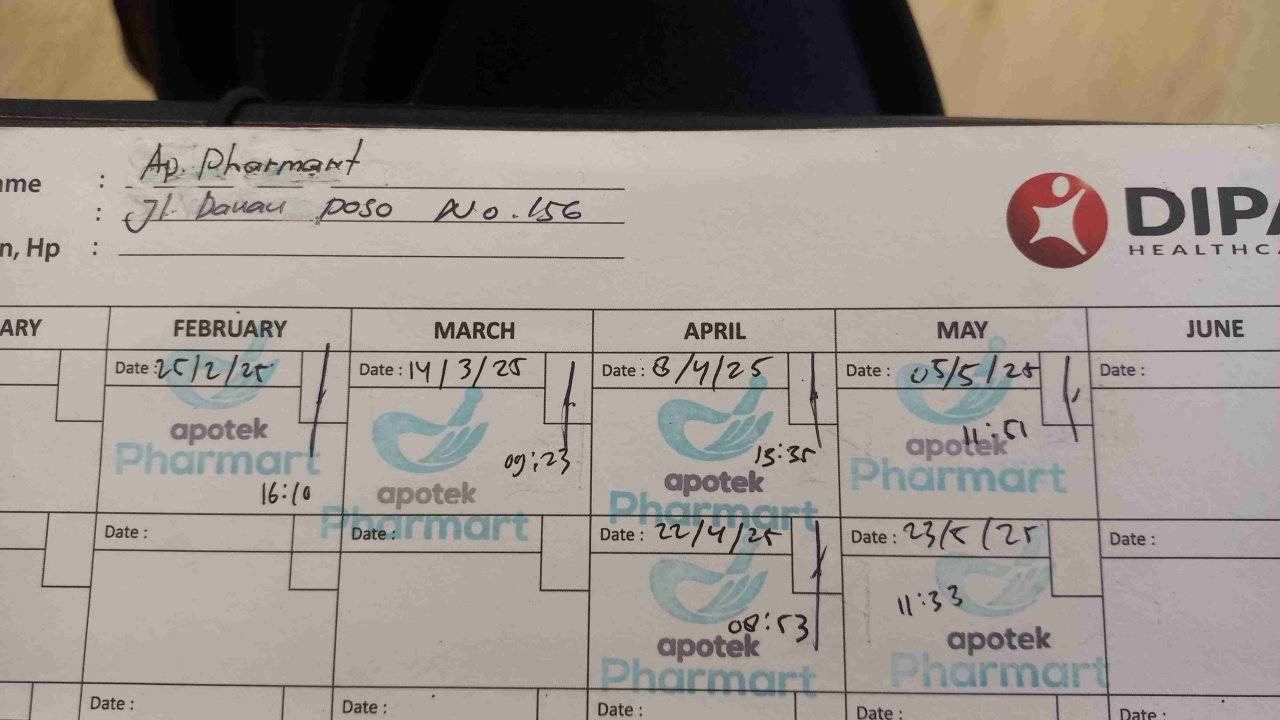 ame : Ap. Pharmart
: Jl. Danau poso No. 156
n, Hp :
DIPA
HEALTHCA
ARY FEBRUARY MARCH APRIL MAY JUNE
Date : 25/2/25 Date : 14/3/25 Date : 8/4/25 Date : 05/5/25 Date :
apotek Pharmart 16:10
apotek Pharmart 09:23
apotek Pharmart 15:35
apotek Pharmart 11:51
Date : Date : Date : 22/4/25 Date : 23/5/25 Date :
apotek Pharmart 08:53
apotek Pharmart 11:33
Date : Date : Date : Date : Date :